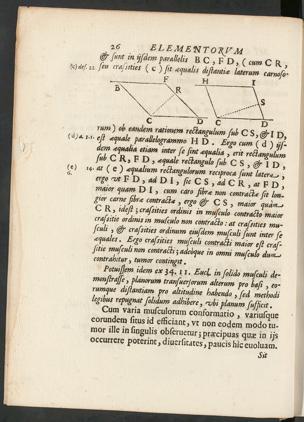 26 ELEMENTORVM
& sunt in ijsdem parallelis BC, FD, (cum CR,
(c) def. 22. seu crassities (c) sit æqualis distantiæ laterum carnoso-
F H I
B R
S
C D C D
rum) ob eandem rationem rectangulum sub CS, & ID,
(d) 2. 1. est æquale parallelogrammo HD. Ergo cum (d) ijs-
dem æqualia etiam inter se sint æqualia, erit rectangulum
sub CR, FD, æquale rectangulo sub CS, & ID,
(e) 14. 6. at (e) æqualium rectangulorum reciproca sunt latera,
ergo vt FD, ad DI, sic CS, ad CR, at FD,
maior quam DI, cum caro fibræ non contractæ sit lon-
gior carne fibræ contractæ, ergo & CS, maior quàm
CR, idest; crassities ordinis in musculo contracto maior
crassitie ordinis in musculo non contracto: at crassities mu-
sculi, & crassities ordinum eiusdem musculi sunt inter se
æquales. Ergo crassities musculi contracti maior est cras-
sitie musculi non contracti; adeoque in omni musculo dum
contrahitur, tumor contingit.
Potuissem idem ex 34. 11. Eucl. in solido musculi de-
monstrasse, planorum transuersorum alterum pro basi, eo-
rumque distantiam pro altitudine habendo, sed methodi
legibus repugnat solidum adhibere, vbi planum sufficit.
Cum varia musculorum conformatio, variusque
eorundem situs id efficiant, vt non eodem modo tu-
mor ille in singulis obseruetur; præcipuas quæ in ijs
occurrere poterint, diuersitates, paucis hîc euoluam.
Sit